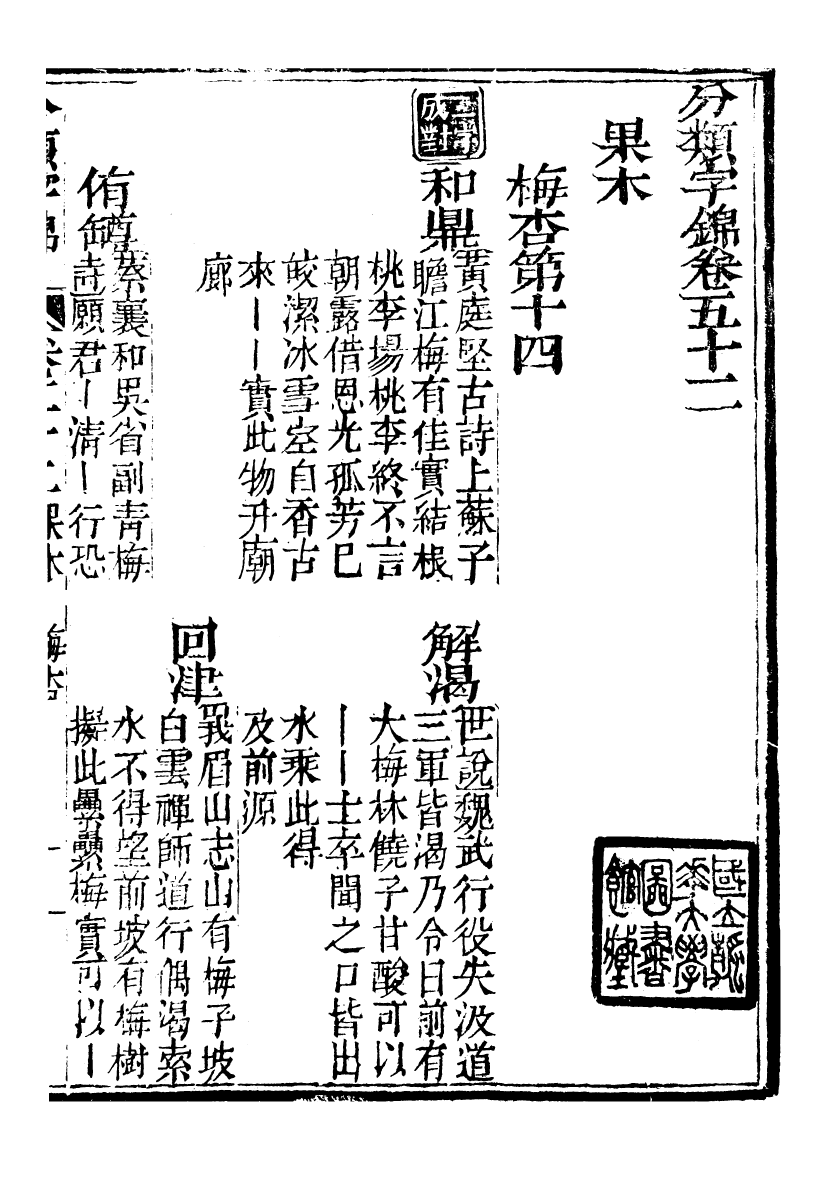 分類字錦卷五十二
果木
梅杏第十四
二字成對
和鼎
黃庭堅古詩上蘇子
瞻江梅有佳實結根
桃李場桃李終不言
朝露借恩光孤芳巳
皎潔冰雪空自香古
來丨丨實此物升廟
廊
解渴
世說魏武行役失汲道
三軍皆渴乃令曰前有
大梅林饒子甘酸可以
丨丨士卒聞之口皆出
水乘此得
及前源
侑罇
蔡襄和吳省副青梅
詩願君丨清丨行恐
回津
峩眉山志山有梅子坡
白雲禪師道行偶渴索
水不得望前坡有梅樹
擬此纍纍梅實可以丨
分類字錦 卷五十二 果木 梅杏 一
國立
大學
圖書
館藏